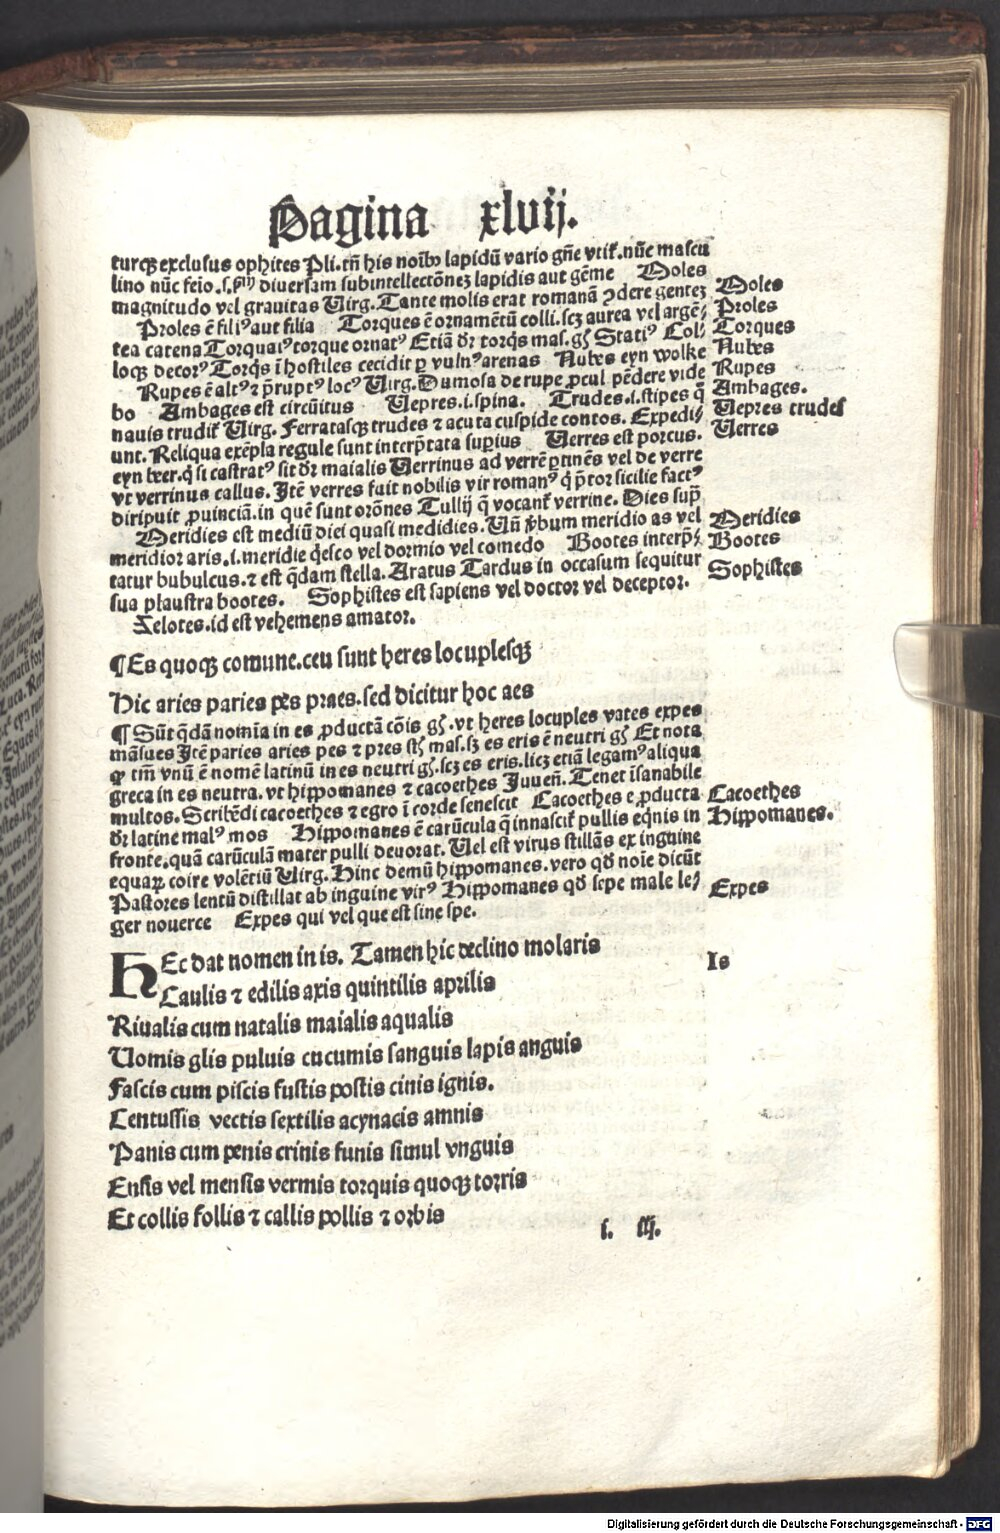 Pagina xlvij.
turqꝫ exclusus ophites Pli. tñ his noĩbꝰ lapidũ vario gñe vtiť. nũc mascu
lino nũc feĩo .s. ẜm diuersam subintellectõneꝫ lapidis aut gẽme Moles
magnitudo vel grauitas Uirg. Tante molis erat romanã ꝯdere genteꝫ
Proles ẽ filiꝰ aut filia Torques ẽ ornamẽtũ colli. scꝫ aurea vel argẽ⸗
tea catena Torquaiꝰ torque ornatꝰ Etiã dr̃ torq̃s mas. gꝭ Statiꝰ Col⸗
loqꝫ decorꝰ Torq̃s ĩ hostiles cecidit ꝑ vulnꝰ arenas Nubes eyn wolke
Rupes ẽ altꝰ ⁊ p̃ruptꝰ locꝰ Uirg. Dumosa de rupe ꝓcul pẽdere vide
bo Ambages est circũitus Uepres .i. spina. Trudes .i. stipes q̃
nauis trudiť Uirg. Ferratasqꝫ trudes ⁊ acuta cuspide contos. Expedi⸗
unt. Reliqua exẽpla regule sunt interp̃tata supius Uerres est porcus.
eyn beer. q̃ si castratꝰ sit dr̃ maialis Uerrinus ad verrẽ ꝑtinẽs vel de verre
vt verrinus callus. Itẽ verres fuit nobilis vir romanꝰ q̃ p̃tor sicilie factꝰ
diripuit ꝓuinciã. in quẽ sunt orõnes Tullij q̃ vocanť verrine. Dies sup̃
Meridies est mediũ diei quasi medidies. Uñ v̾bum meridio as vel
meridior aris .i. meridie q̃esco vel dormio vel comedo Bootes interp̃⸗
tatur bubulcus. ⁊ est q̃dam stella. Aratus Tardus in occasum sequitur
sua plaustra bootes. Sophistes est sapiens vel doctor vel deceptor.
Zelotes. id est vehemens amator.
Moles
Proles
Torques
Nubes
Rupes
Ambages.
Uepres trudes
Uerres
Meridies
Bootes
Sophistes
¶ Es quoqꝫ comune. ceu sunt heres locuplesqꝫ
Hic aries paries pes praes. sed dicitur hoc aes
¶ Sũt q̃dã nomĩa in es ꝓductã cõis gꝭ. vt heres locuples vates expes
mãsues Itẽ paries aries pes ⁊ pres st̃ mas. sꝫ es eris ẽ neutri gꝭ Et nota
ꝙ tm̃ vnũ ẽ nomẽ latinũ in es neutri gꝭ. scꝫ es eris. licꝫ etiã legamꝰ aliqua
greca in es neutra. vt hippomanes ⁊ cacoethes Juueñ. Tenet ĩsanabile
multos. Scribẽdi cacoethes ⁊ egro ĩ corde senescit Cacoethes e ꝓducta
dr̃ latine malꝰ mos Hippomanes ẽ carũcula q̃ innasciť pullis eq̃nis in
fronte. quã carũculã mater pulli deuorat. Uel est virus stillãs ex inguine
equaꝝ coire volẽtiũ Uirg. Hinc demũ hippomanes. vero qd̃ noĩe dicũt
Pastores lentũ distillat ab inguine virꝰ Hippomanes qd̃ sepe male le⸗
ger nouerce Expes qui vel que est sine spe.
Cacoethes
Hippomanes.
Expes
HEc dat nomen in is. Tamen hic declino molaris
Caulis ⁊ edilis axis quintilis aprilis
Riualis cum natalis maialis aqualis
Uomis glis puluis cucumis sanguis lapis anguis
Fascis cum piscis fustis postis cinis ignis.
Centussis vectis sextilis acynacis amnis
Panis cum penis crinis funis simul vnguis
Ensis vel mensis vermis torquis quoqꝫ torris
Et collis follis ⁊ callis pollis ⁊ orbis
Is
Digitalisierung gefördert durch die Deutsche Forschungsgemeinschaft - DFG